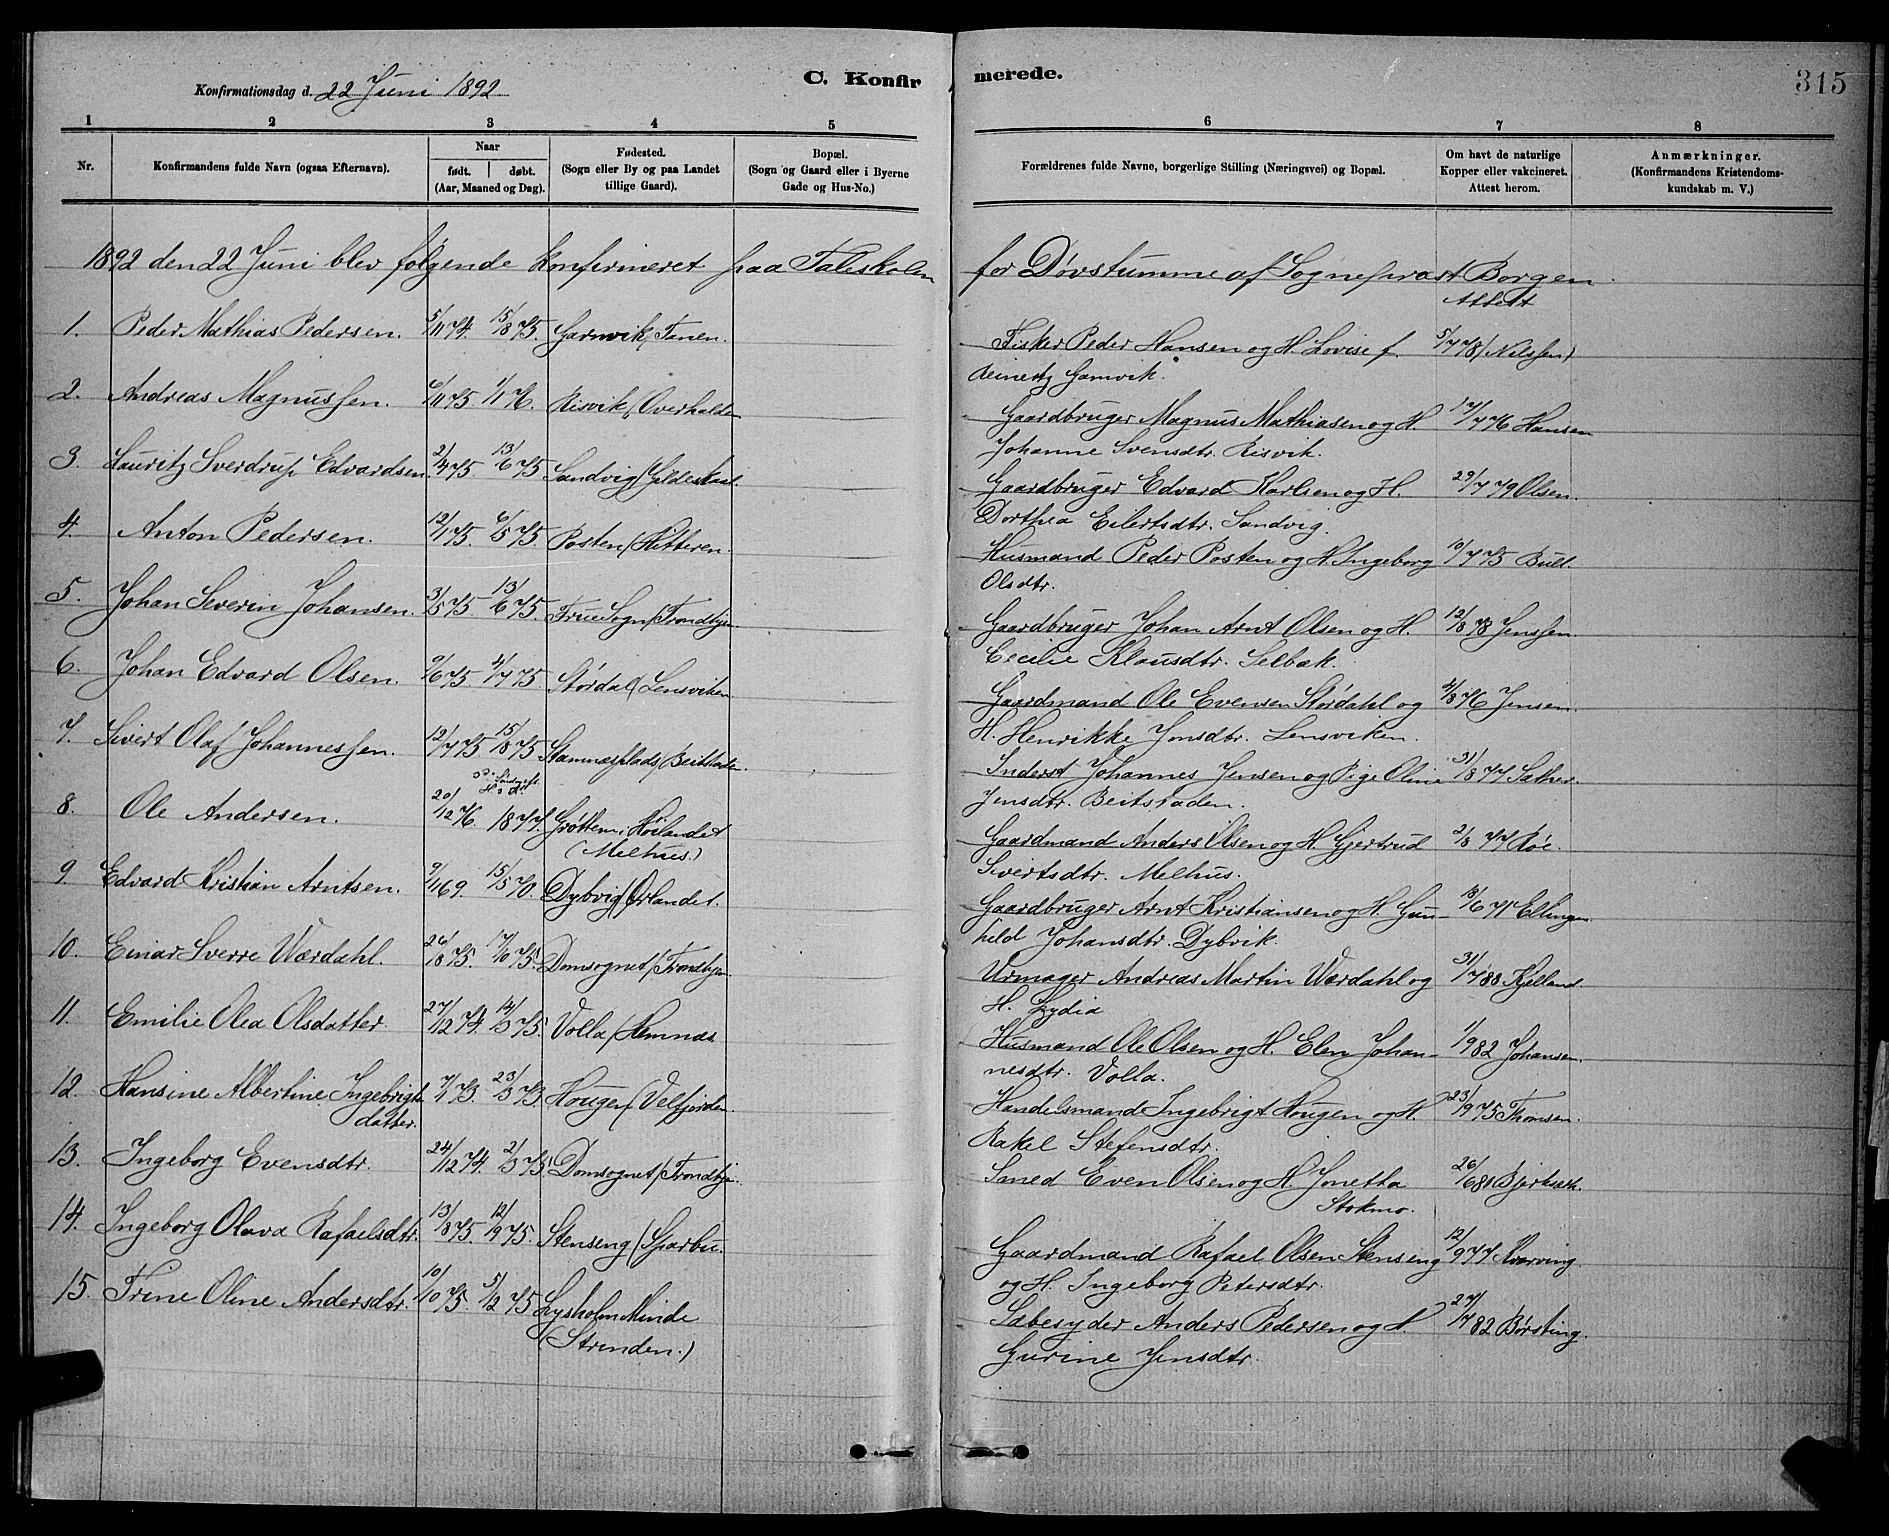 Konfirmationsdag d. 22 Juni 1892.
C. Konfir merede.
315
1 2 3 4 5 6 7 8
Nr.
Konfirmandens fulde Navn (ogsaa Efternavn).
Naar
født. døbt.
(Aar, Maaned og Dag).
Fødested.
(Sogn eller By og paa Landet
tillige Gaard).
Bopæl.
(Sogn og Gaard eller i Byerne
Gade og Hus-No.)
Forældrenes fulde Navne, borgerlige Stilling (Næringsvei) og Bopæl.
Om havt de naturlige
Kopper eller vakcineret.
Attest herom.
Anmærkninger.
(Konfirmandens Kristendoms-
kundskab m. V.)
1892 den 22 Juni blev følgende konfirmeret paa Taleskolen for Døvstumme af Sognepræst Borgen
Attest
1. Peder Mathias Pedersen. 5/11 74. 15/8 75. Gamvik, Tanen. Fisker Peder Hansen og H. Lovise f. 5/7 78 (Nilssen)
Reinertz Gamvik.
2. Andreas Magnussen. 6/11 75. 1/1 76. Risvik, Overhalden Gaardbruger Magnus Mathiasen og H. 17/7 76 Hansen
Johanne Svensdtr. Risvik.
3. Lauritz Sverdrup Edvardsen. 2/4 75. 13/6 75. Sandvig (Gildeskaal. Gaardbruger Edvard Karlsen og H. 29/7 79 Olsen.
Dorthea Eilertsdtr. Sandvig.
4. Anton Pedersen. 12/1 75. 6/5 75. Posten (Hitteren. Husmand Peder Posten og H. Ingeborg 10/7 75 Bull.
Olsdtr.
5. Johan Severin Johansen. 3/5 75. 13/6 75. Frue Sogn (Trondhjem Gaardbruger Johan Arnt Olsen og H. 12/8 78 Jenssen.
Cecilie Klausdtr. Selbæk.
6. Johan Edvard Olsen. 9/6 75. 4/7 75. Stördal (Lensviken Gaardmand Ole Evensen Stördahl og 4/8 76 Jensen.
H. Henrikke Jonsdtr. Lensviken.
7. Sivert Olaf Johannessen. 12/7 75 15/8 75 Stamnesplads (Beitstaden. Inderst Johannes Jensen og Pige Oline 31/8 77 Sæther.
Jensdtr. Beitstaden.
8. Ole Andersen. 20/12 76. 1877. Grøttem i Hølandet Gaardmand Anders Olsen og H. Gjertrud 2/8 77 Röe.
(Melhus.) Sivertsdtr. Melhus.
9. Edvard Kristian Arntsen. 9/1 69. 15/5 70. Dybvig (Ørlandet. Gaardbruger Arnt Kristiansen og H. Gun- 13/6 71 Ellingsen
hild Johansdtr. Dybvik.
10. Einar Sverre Værdahl. 26/8 75. 17/10 75. Domsognet (Trondhjem. Urmager Andreas Martin Værdahl og 31/7 83 Kjelland.
H. Lydia
11. Emilie Olea Olsdatter. 27/12 74. 14/3 75. Volla (Hemnæs. Husmand Ole Olsen og H. Elen Johan- 1/9 82 Johansen.
nesdtr. Volla.
12. Hansine Albertine Ingebrigts- 7/1 73. 23/3 73. Hougen (Velfjorden. Handelsmand Ingebrigt Hougen og H. 23/9 75 Thomsen.
datter. Rakel Stefensdtr.
13. Ingeborg Evensdtr. 24/12 74. 2/3 75. Domsognet (Trondhjem. Smed Even Olsen og H. Jonetta 26/6 80 Bjerkseth.
Stokmo.
14. Ingeborg Olava Rafaelsdtr. 13/8 75. 12/9 75. Stenseng (Sparbu. Gaardmand Rafael Olsen Stenseng 12/9 77 Kvarving.
og H. Ingeborg Petersdtr.
15. Trine Oline Andersdtr. 10/10 75. 5/12 75. Lysholm Minde Sæbesyder Anders Pedersen og H. 27/7 82 Børsting.
(Strinden.) Gurine Jensdtr.